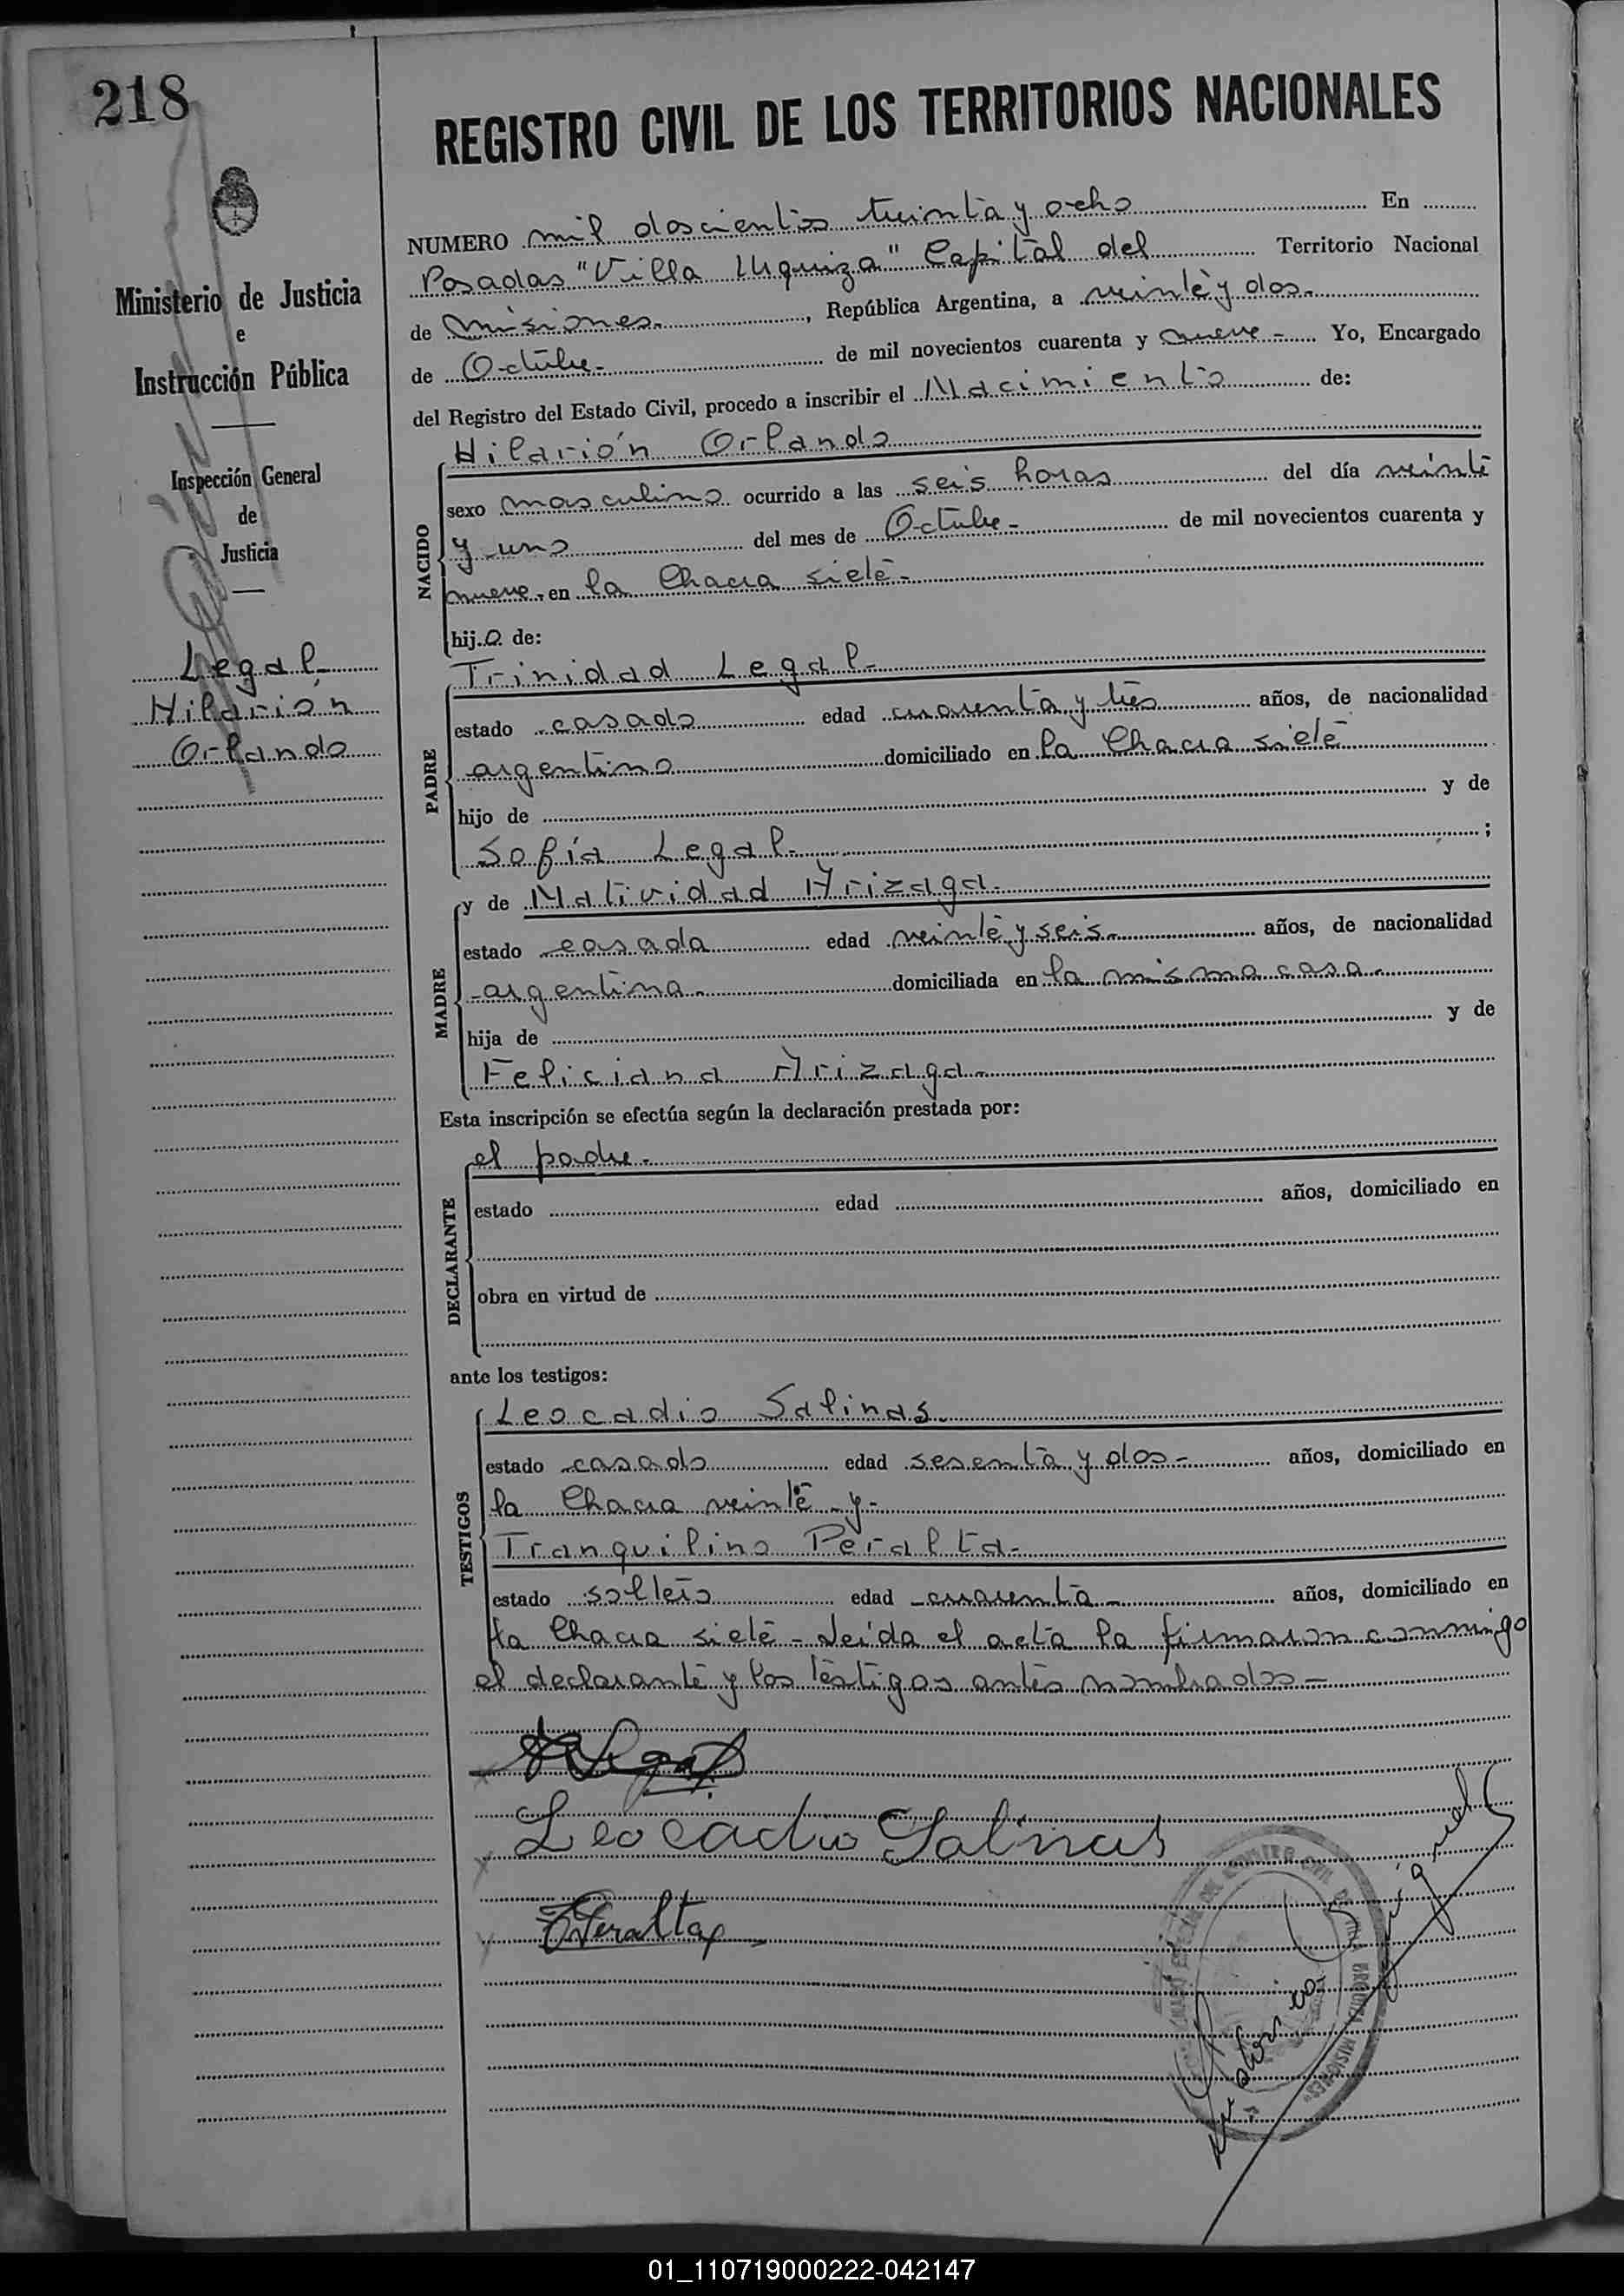 218
REGISTRO CIVIL DE LOS TERRITORIOS NACIONALES
Ministerio de Justicia
e
Instrucción Pública
Inspección General
de
Justicia
Legal
Hilarión
Orlando
NUMERO mil doscientos treinta y ocho En
Posadas "Villa Urquiza" Capital del Territorio Nacional
de Misiones, República Argentina, a veinte y dos
de Octubre de mil novecientos cuarenta y nueve Yo, Encargado
del Registro del Estado Civil, procedo a inscribir el Nacimiento de:
Hilarión Orlando
NACIDO
sexo masculino ocurrido a las seis horas del día veinte
y uno del mes de Octubre de mil novecientos cuarenta y
nueve en la Chacra siete
hijo de:
Trinidad Legal
PADRE
estado casado edad cuarenta y tres años, de nacionalidad
argentino domiciliado en la Chacra siete
hijo de y de
Sofía Legal ;
y de Natividad Arizaga
MADRE
estado casada edad veinte y seis años, de nacionalidad
argentina domiciliada en la misma casa
hija de y de
Feliciana Arizaga
Esta inscripción se efectúa según la declaración prestada por:
el padre
DECLARANTE
estado edad años, domiciliado en
obra en virtud de
ante los testigos:
Leocadio Salinas
TESTIGOS
estado casado edad sesenta y dos años, domiciliado en
la Chacra veinte y
Tranquilino Peralta
estado soltero edad cuarenta años, domiciliado en
la Chacra siete - Leída el acta la firmaron conmigo
el declarante y los testigos antes nombrados
Legal
Leocadio Salinas
T Peralta
01_110719000222-042147